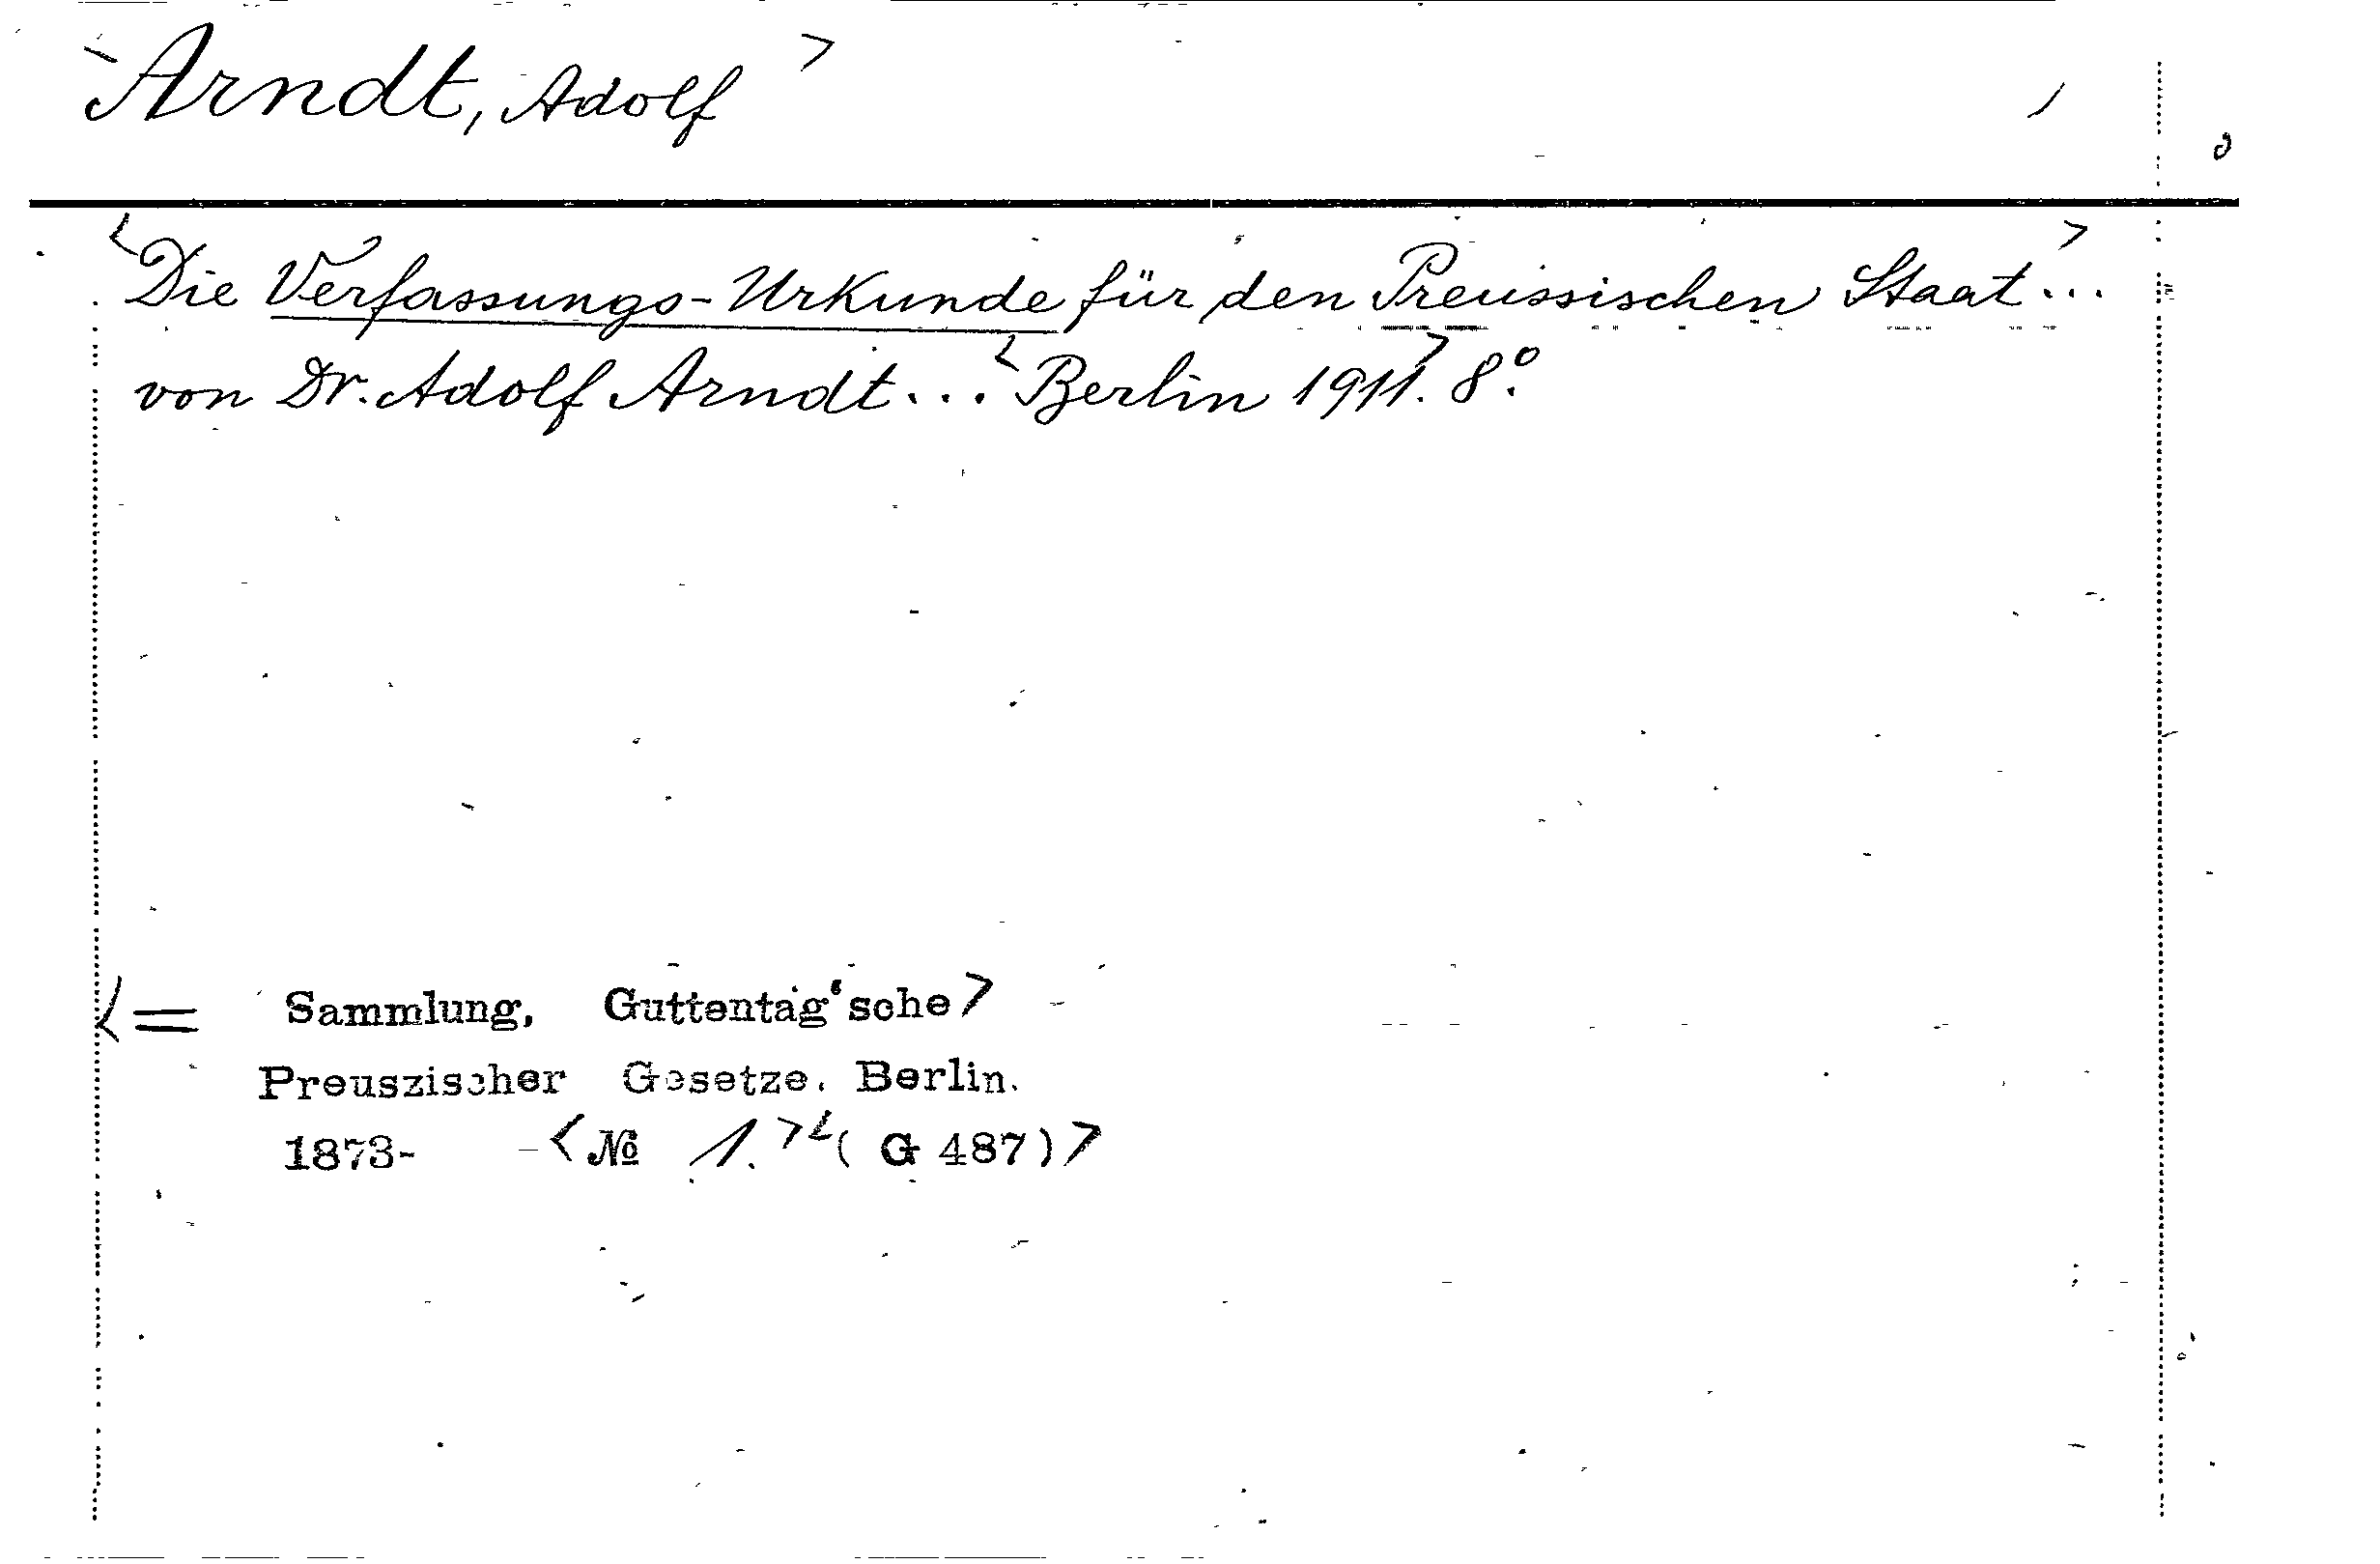 Arndt, Adolf >
<Die Verfassungs-Urkunde für den Preussischen Staat...>
von Dr. Adolf Arndt... <Berlin 1911>. 8°.
<= Sammlung, Guttentag'sche>
Preuszischer Gesetze. Berlin.
1873- -<№ 1.><( G 487)>